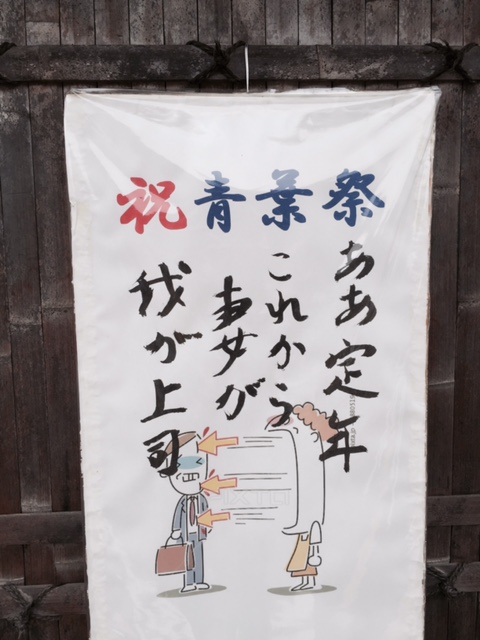 祝青葉祭
ああ定年
これから妻が
我が上司